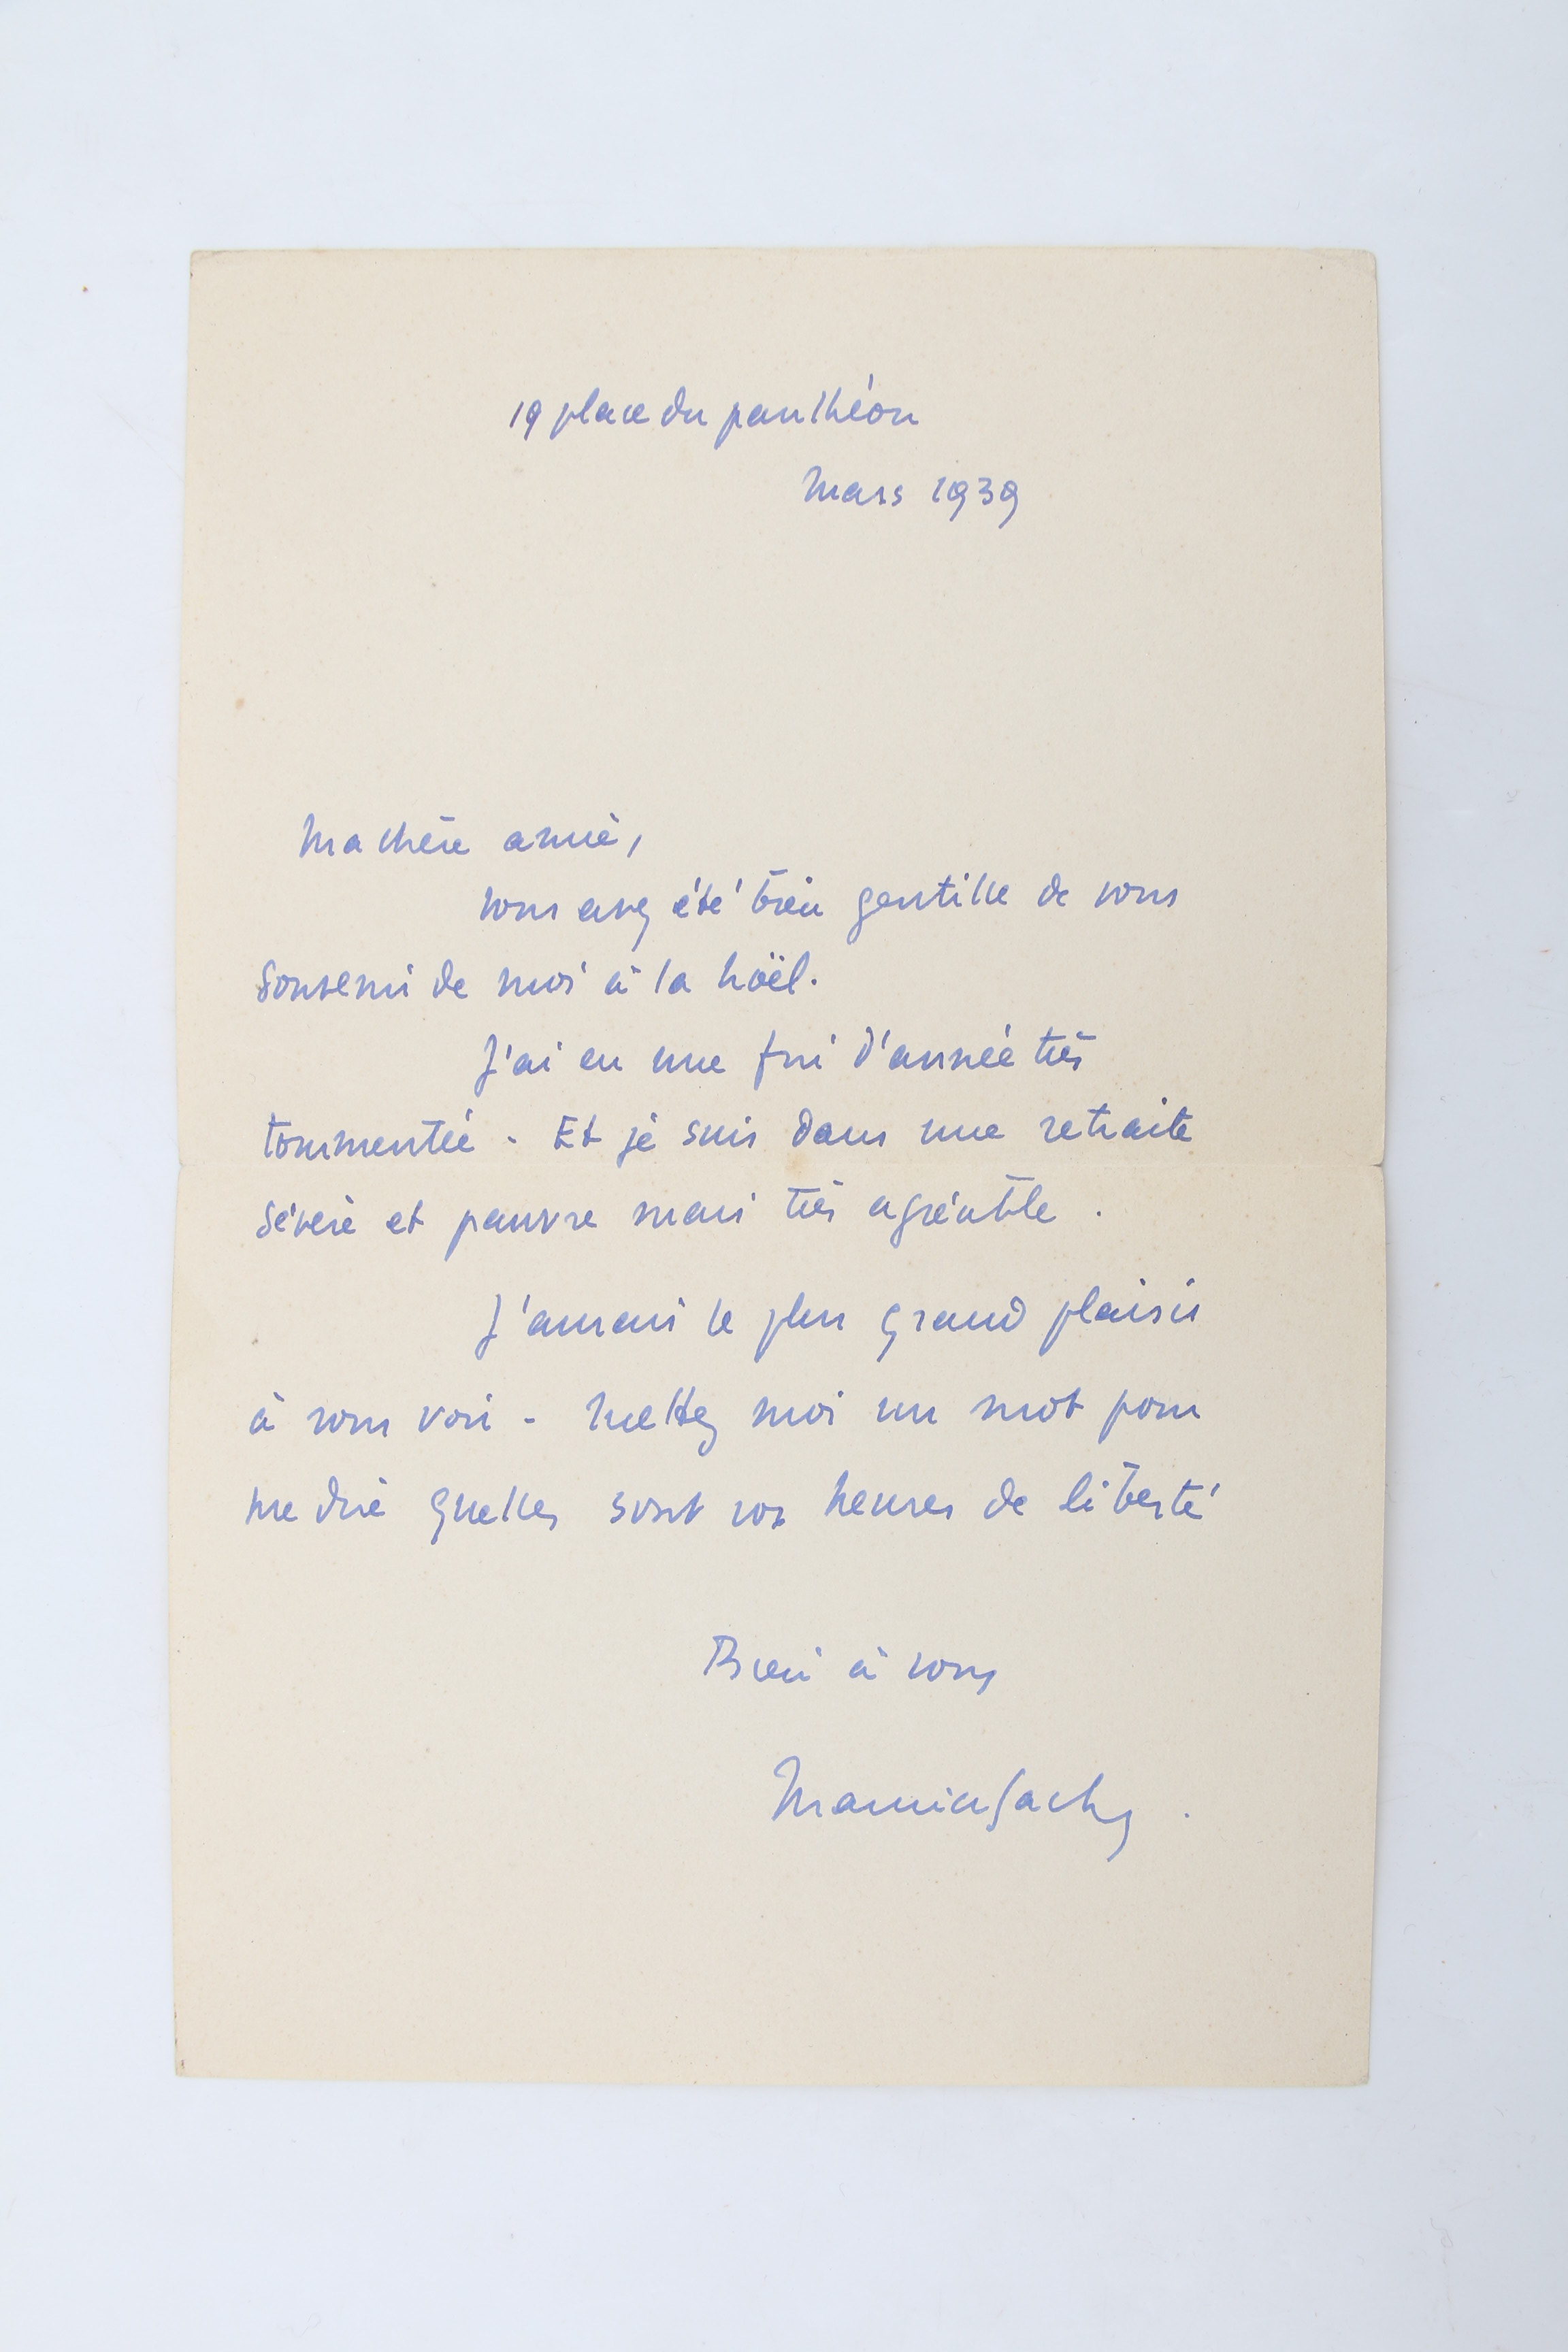 19 place du panthéon
Mars 1939
Ma chère amie,
vous avez été bien gentille de vous
souvenir de moi à la Noël.
J'ai eu une fin d'année très
tourmentée - Et je suis dans une retraite
sévère et pauvre mais très agréable.
J'aurais le plus grand plaisir
à vous voir - Mettez moi un mot pour
me dire quelles sont vos heures de liberté
Bien à vous
Maurice Sachs.